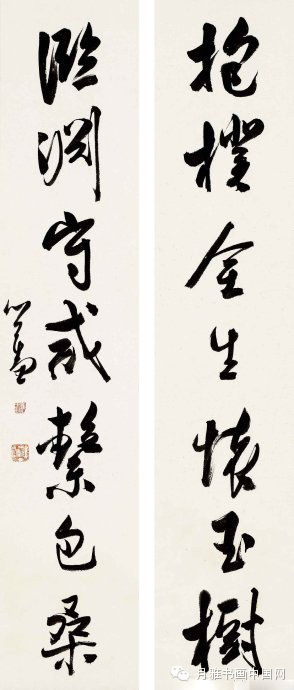 抱樸全生懷玉樹
臨淵守繫包桑
心畬
月雅书画中国网